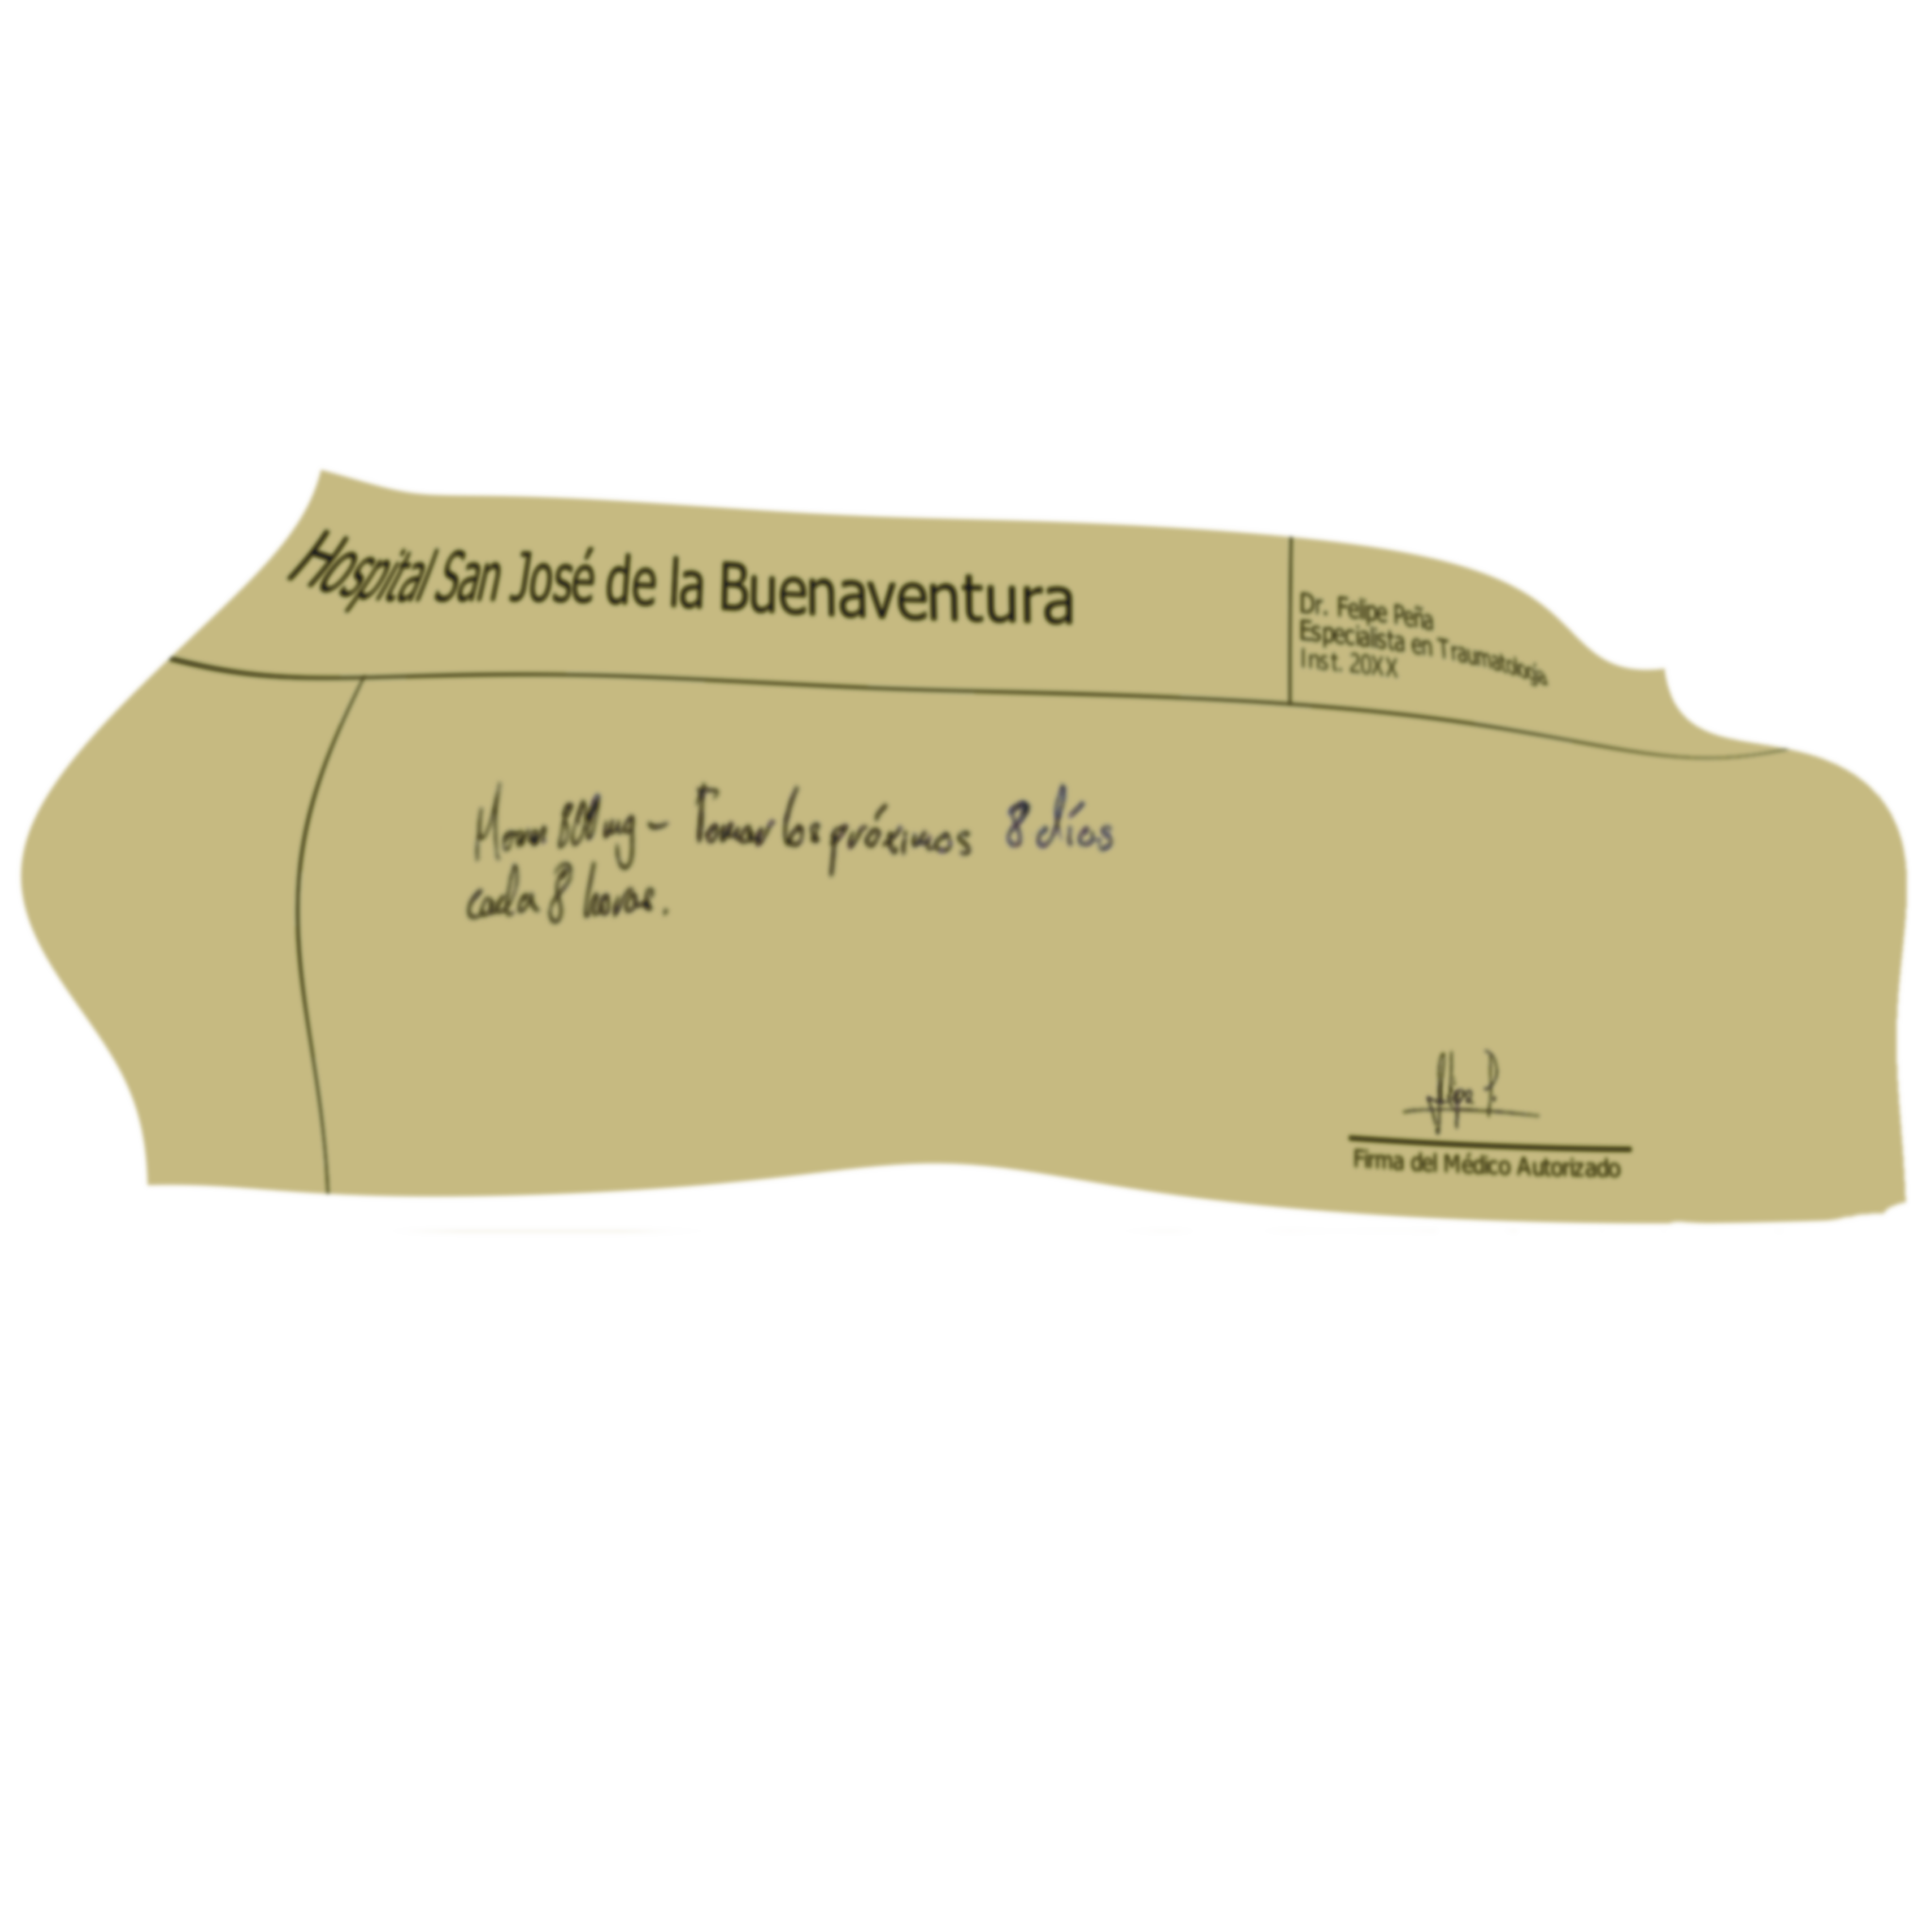 Hospital San José de la Buenaventura
Dr. Felipe Peña
Especialista en Traumatología
Inst. 20XX
mg - Tomar los próximos 8 días
cada 8 horas.
Firma del Médico Autorizado